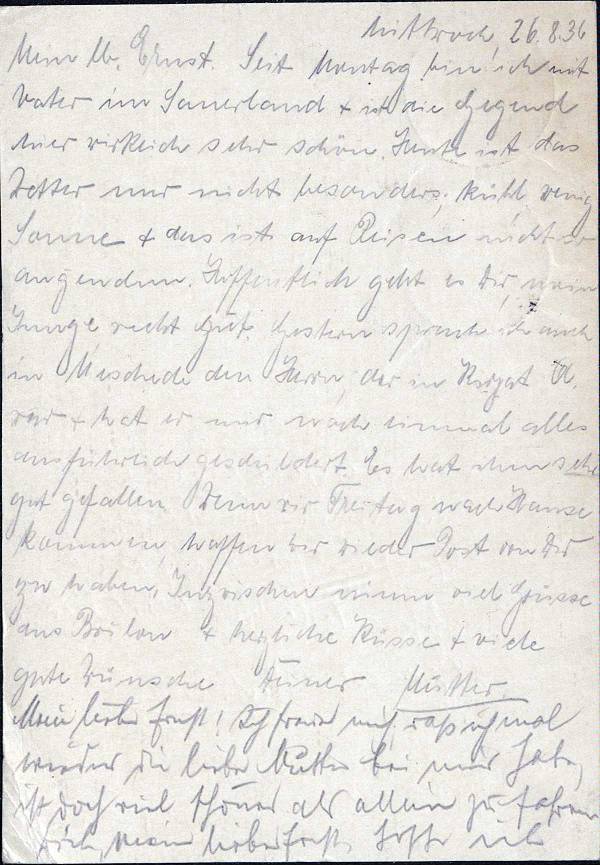 Mittwoch, 26.8.36
Mein lb. Ernst. Seit Montag bin ich mit
Vater im Sauerland + ist die Gegend
hier wirklich sehr schön. Heute ist das
Wetter nur nicht besonders, kühl, wenig
Sonne + das ist auf Reisen nicht so
angenehm. Hoffentlich geht es Dir, mein
Junge, recht gut. Gestern sprach ich auch
in Meschede den Herrn, der in Kirjat A.
war + hat er mir noch einmal alles
ausführlich geschildert. Es hat ihm sehr
gut gefallen. Wenn wir Freitag nach Hause
kommen, hoffen wir wieder Post von Dir
zu haben. Inzwischen nimm viel Grüsse
aus Brilon + herzliche Küsse + viele
gute Wünsche Deiner Mutter.
Mein lieber Ernst! Ich freue mich, daß ich mal
wieder die liebe Mutter bei mir habe,
ist doch viel schöner als allein zu fahren
mein lieber Ernst, hoffe ich